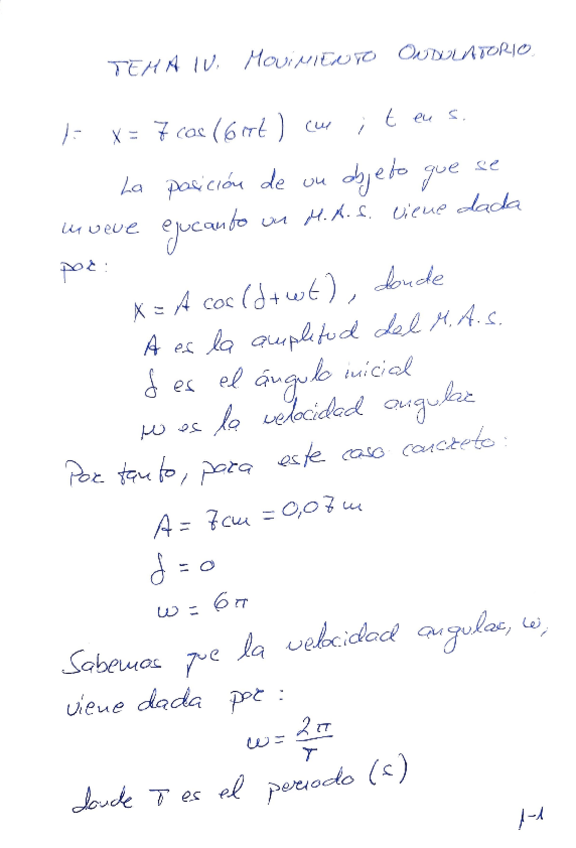 TEMA IV. MOVIMIENTO ONDULATORIO
1.- x = 7 cos (6πt) cm ; t en s.
La posición de un objeto que se
mueve ejucanto un M.A.S. viene dada
por:
x = A cos (δ+ωt), donde
A es la amplitud del M.A.S.
δ es el ángulo inicial
ω es la velocidad angular
Por tanto, para este caso concreto:
A = 7cm = 0,07 m
δ = 0
ω = 6π
Sabemos que la velocidad angular, ω,
viene dada por :
ω = 2π/T
donde T es el periodo (s)
1-1